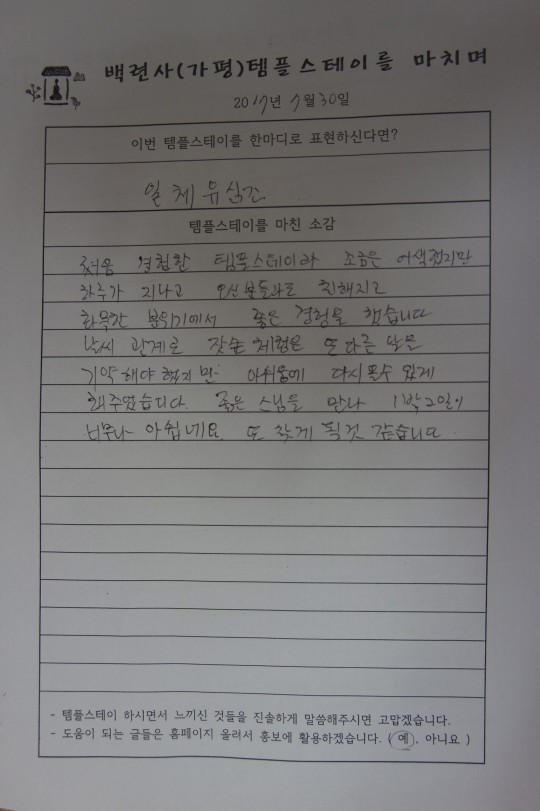 백련사(가평)템플스테이를 마치며
2017년 7월30일
이번 템플스테이를 한마디로 표현하신다면?
일체유심조
템플스테이를 마친 소감
처음 경험한 템플스테이라 조금은 어색했지만
하루가 지나고 오신분들과도 친해지고
화목한 분위기에서 좋은 경험을 했습니다
날씨 관계로 잣숲 체험은 또다른 날을
기약해야 했지만 아쉬움에 다시올수 있게
해주었습니다. 좋은 스님을 만나 1박2일이
너무나 아쉽네요. 또 찾게 될것 같습니다.
- 템플스테이 하시면서 느끼신 것들을 진솔하게 말씀해주시면 고맙겠습니다.
- 도움이 되는 글들은 홈페이지 올려서 홍보에 활용하겠습니다. ( 예 , 아니요 )